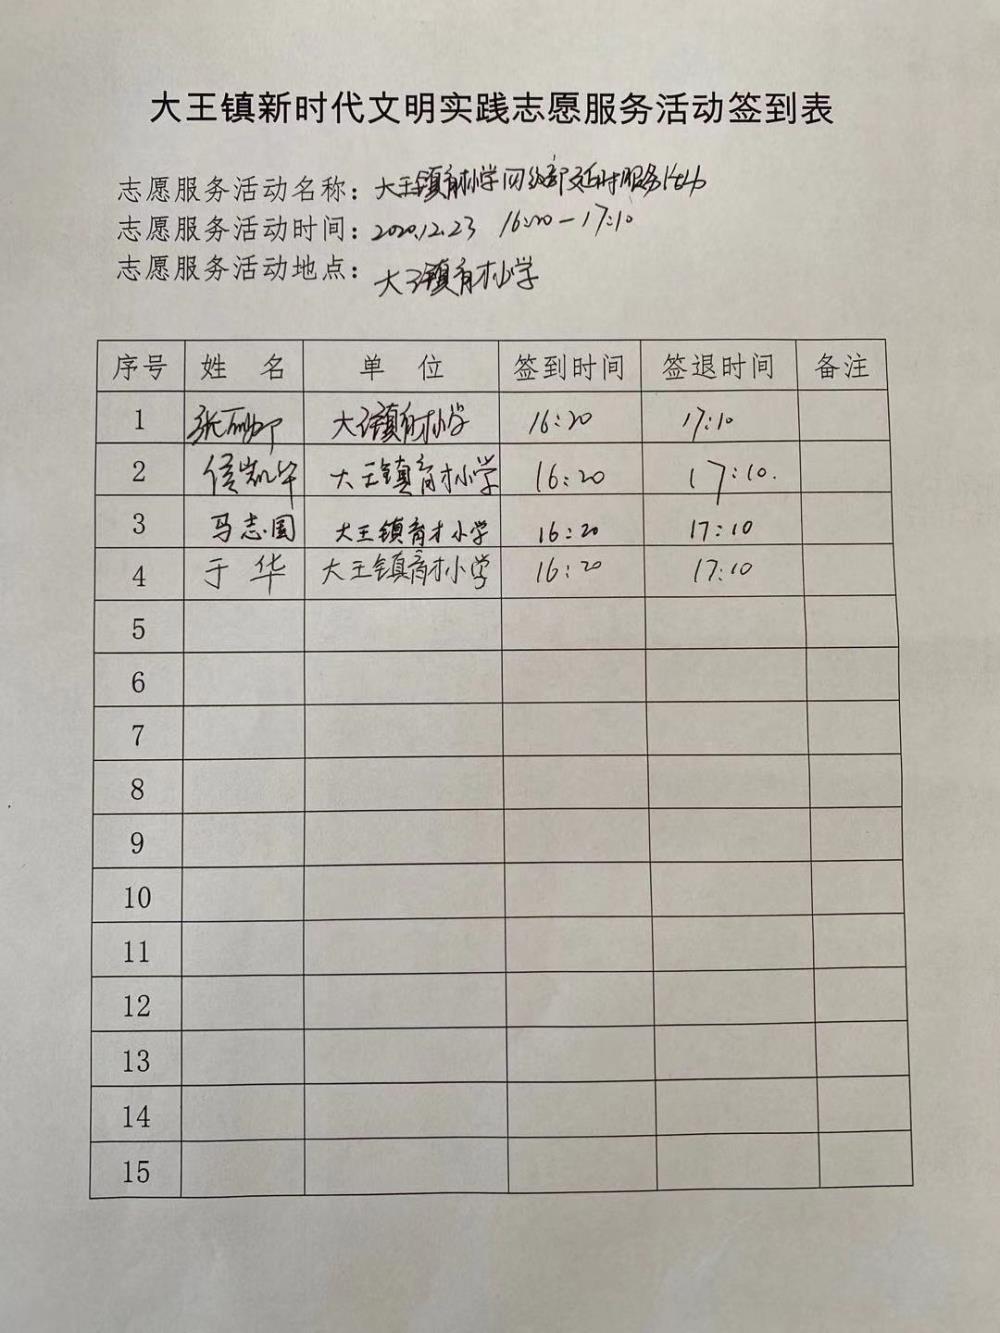 大王镇新时代文明实践志愿服务活动签到表
志愿服务活动名称：大王镇育才小学四级部延时服务活动
志愿服务活动时间：2020.12.23 16:20—17:10
志愿服务活动地点：大王镇育才小学
序号 姓 名 单 位 签到时间 签退时间 备注
1 张 大王镇育才小学 16:20 17:10
2 侯凯华 大王镇育才小学 16:20 17:10.
3 马志国 大王镇育才小学 16:20 17:10
4 于华 大王镇育才小学 16:20 17:10
5
6
7
8
9
10
11
12
13
14
15